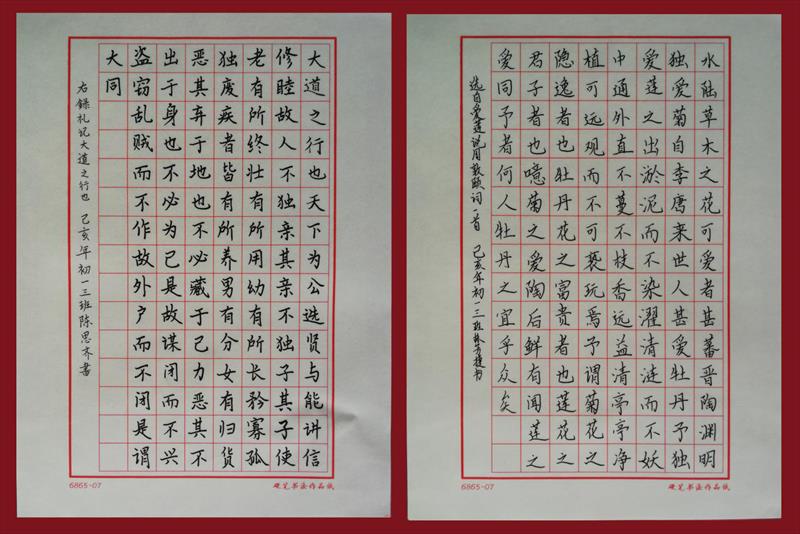 大道之行也天下为公选贤与能讲信
修睦故人不独亲其亲不独子其子使
老有所终壮有所用幼有所长矜寡孤
独废疾者皆有所养男有分女有归货
恶其弃于地也不必藏于己力恶其不
出于身也不必为己是故谋闭而不兴
盗窃乱贼而不作故外户而不闭是谓
大同
右錄礼记大道之行也 己亥年初一三班陈思齐书
6865-07
硬笔书法作品纸
水陆草木之花可爱者甚蕃晋陶渊明
独爱菊自李唐来世人甚爱牡丹予独
爱莲之出淤泥而不染濯清涟而不妖
中通外直不蔓不枝香远益清亭亭净
植可远观而不可亵玩焉予谓菊花之
隐逸者也牡丹花之富贵者也莲花之
君子者也噫菊之爱陶后鲜有闻莲之
爱同予者何人牡丹之宜乎众矣
选自爱莲说周敦颐词一首 己亥年初一三班
6865-07
硬笔书法作品纸